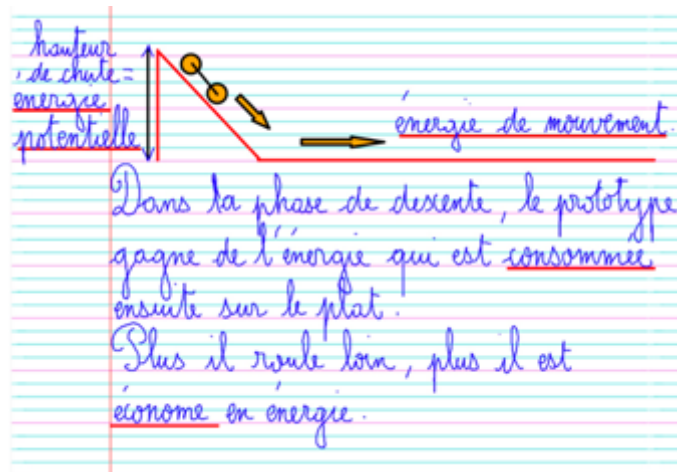 hauteur
de chute =
énergie
potentielle
énergie de mouvement.
Dans la phase de descente, le prototype
gagne de l'énergie qui est consommée
ensuite sur le plat.
Plus il roule loin, plus il est
économe en énergie.